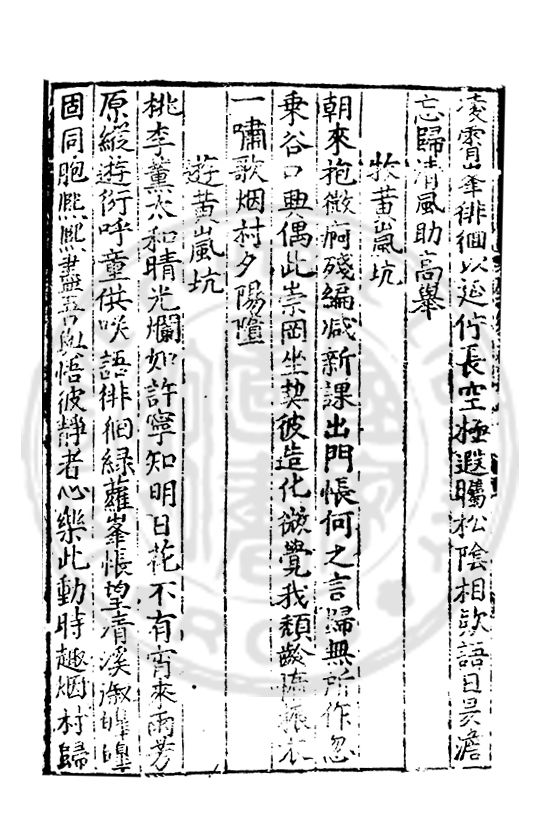 凌霄峯徘徊以延佇長空極遐矚松陰相欵語日晃澹
忘歸清風助高舉
牧黃嵐坑
朝來抱微痾殘編减新課出門悵何之言歸無所作忽
乘谷口興偶此崇岡坐契彼造化微覺我頹齡
一嘯歌烟村夕陽墮
遊黃嵐坑
桃李薰太和晴光爛如許寧知明日花不有宵來雨芳
原縱遊衍呼童供咲語徘徊綠蘿峯悵望清溪溆
固同胞熙熙盡吾與悟彼靜者心樂此動時趣烟村歸